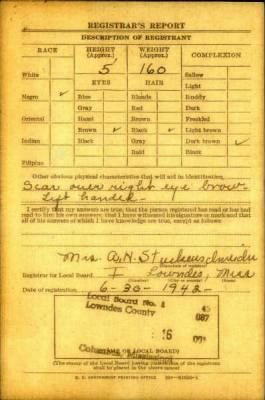 REGISTRAR'S REPORT
DESCRIPTION OF REGISTRANT
RACE HEIGHT (Approx.) WEIGHT (Approx.) COMPLEXION
White 5 160 Sallow
EYES HAIR Light
Negro ✓ Blue Blonde Ruddy
Gray Red Dark
Oriental Hazel Brown Freckled
Brown ✓ Black ✓ Light brown
Indian Black Gray Dark brown ✓
Bald Black
Filipino
Other obvious physical characteristics that will aid in identification
Scar over right eye brow-
Left handed-
I certify that my answers are true; that the person registered has read or has had
read to him his own answers; that I have witnessed his signature or mark and that
all of his answers of which I have knowledge are true, except as follows:
Mrs A.N.
Registrar for Local Board 1 Lowndes, Miss
Date of registration 6-30-1942-
Local Board No. 1
Lowndes County
087
Columbus, Mississippi
(STAMP OF LOCAL BOARD)
(The stamp of the Local Board having jurisdiction of the registrant
shall be placed in the above space)
U. S. GOVERNMENT PRINTING OFFICE